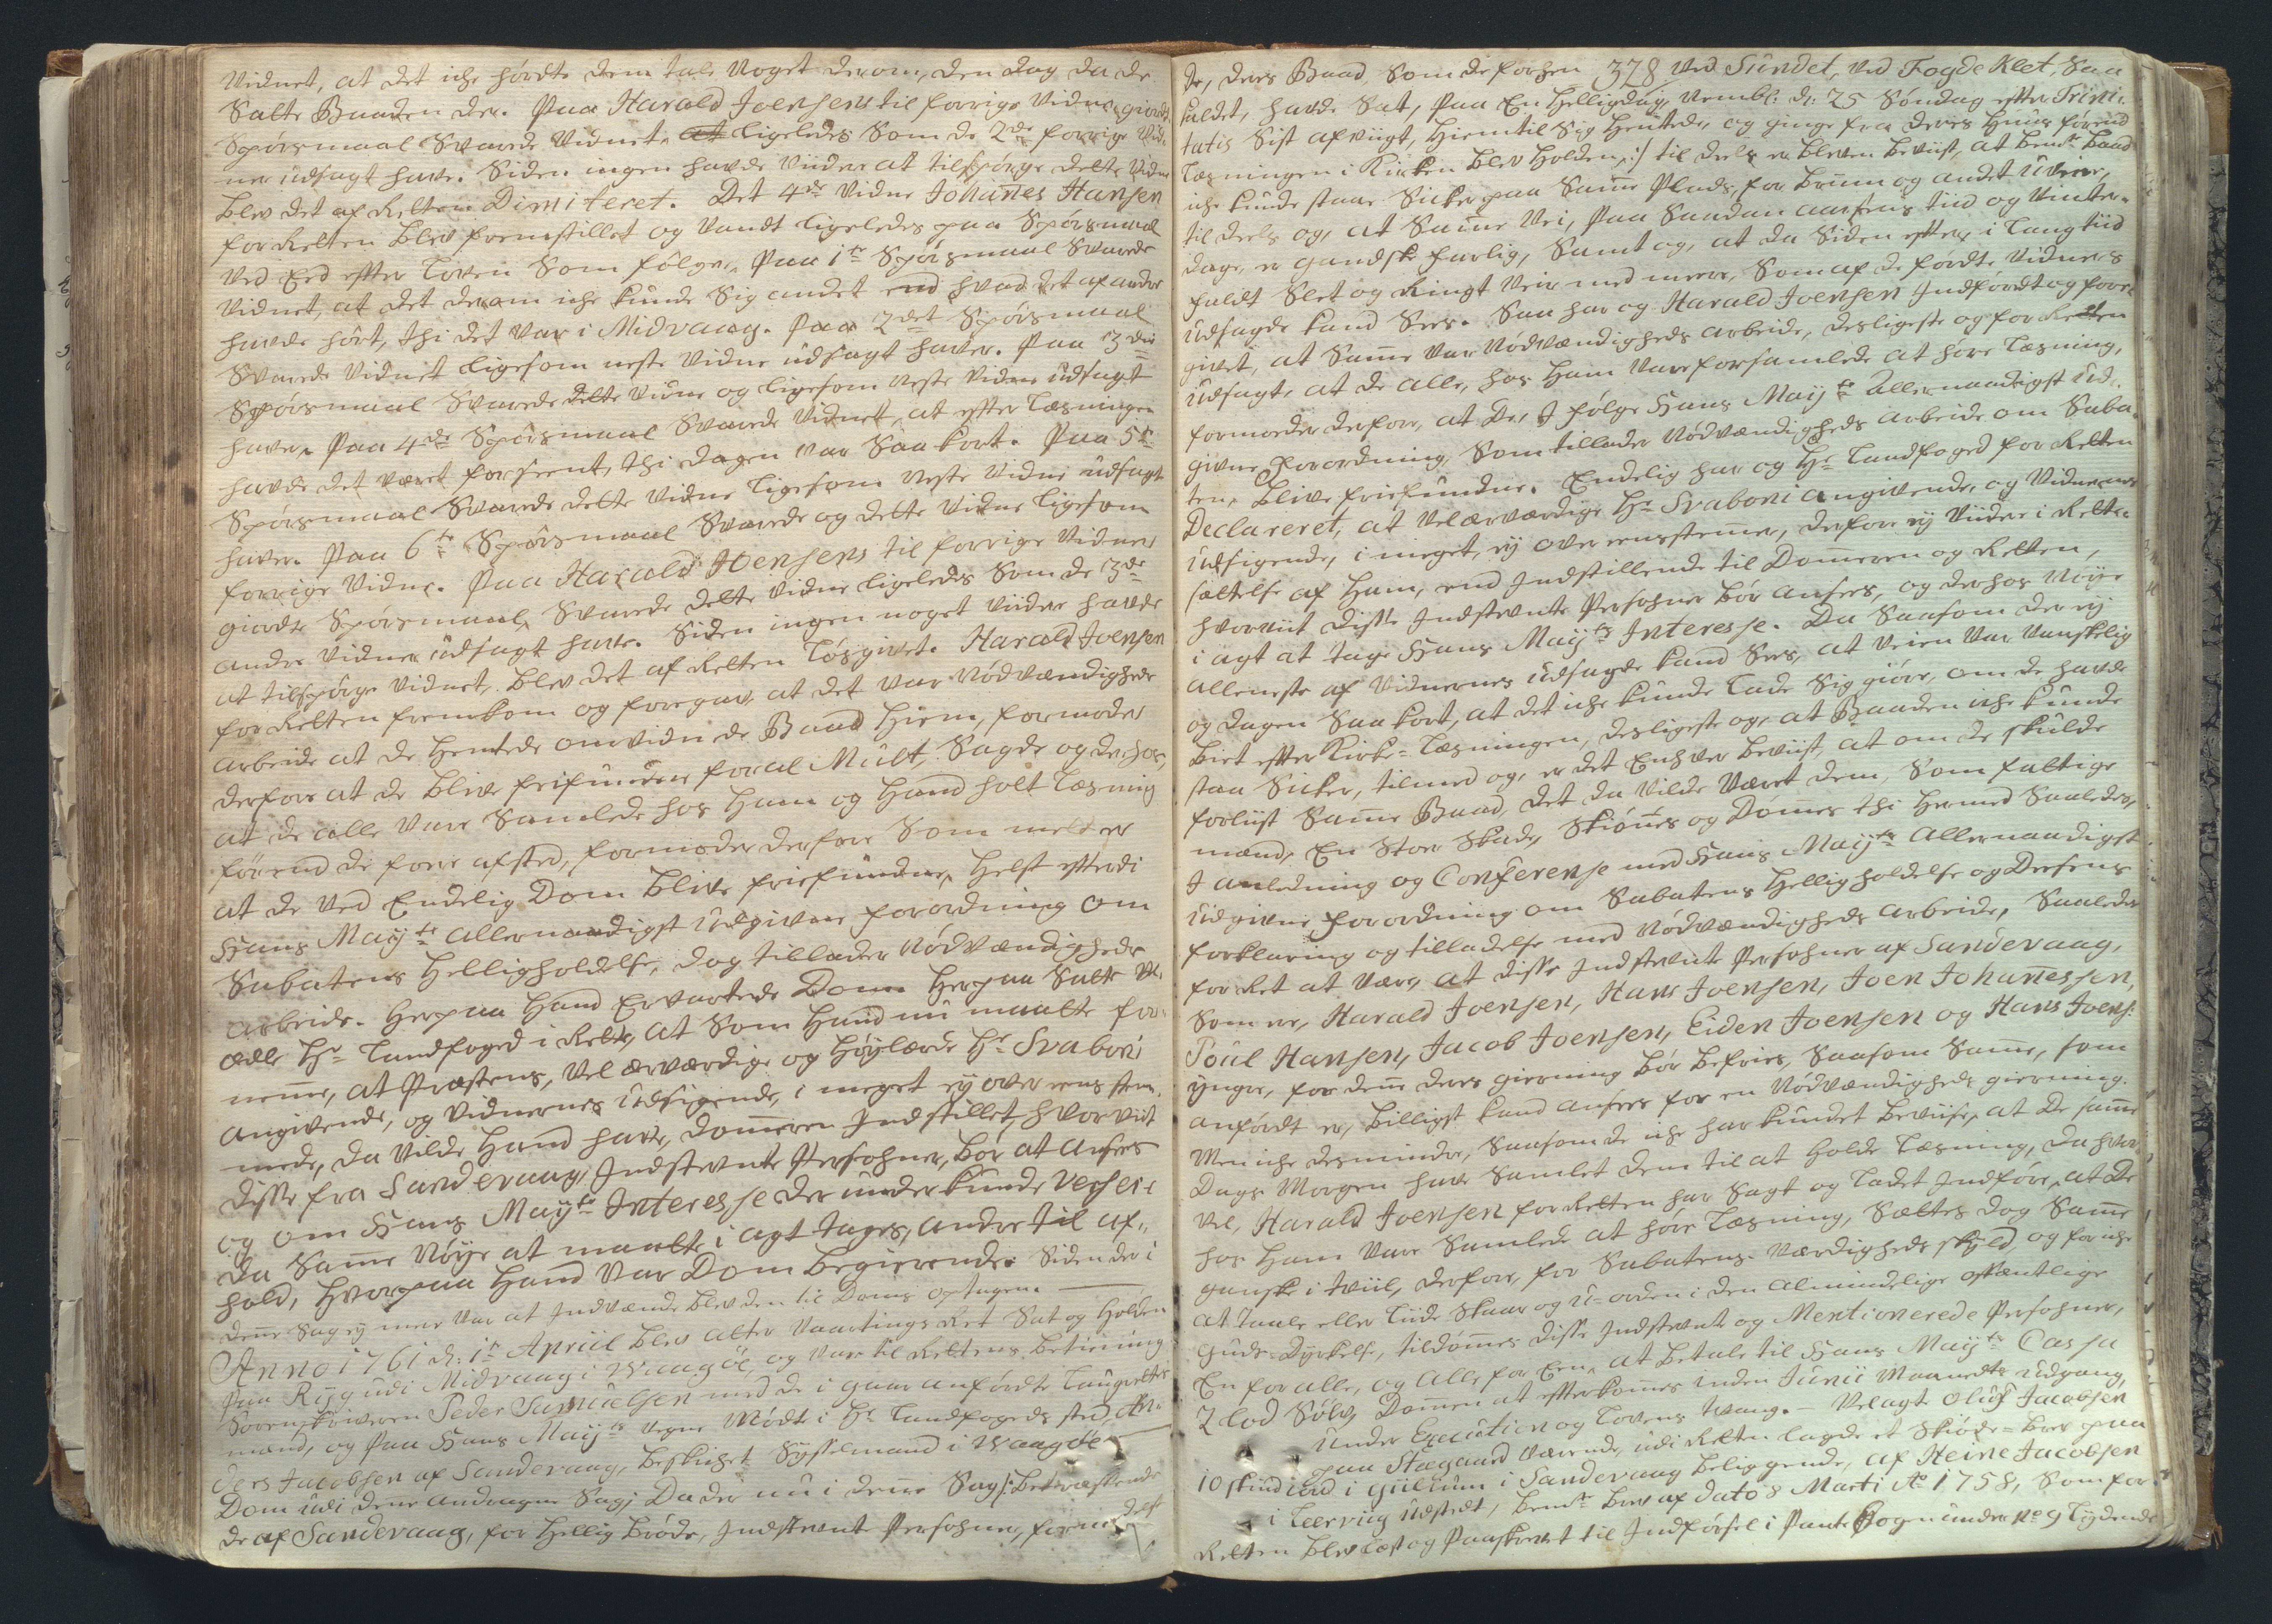 Vidnet, at det iche hørdte dem tale Noget derom, den dag da de
Satte Baaden der. Paa Harald Joensens til forrige Vidner giorde
Spørsmaal Svarede Vidnet, at ligeledes Som de 2de forrige Vid-
ner udsagt have. Siden ingen havde Viidere at tilspørge dette Vidne
blev det af Retten Dimiteret. Det 4de Vidne Johannes Hansen
for Retten blev fremstillet og Vandt ligeledes paa Spørsmaal
Ved Eed efter Loven Som følger, Paa 1te Spørsmaal Svarede
Vidnet, at det derom iche kunde Sig andet end hvad det af andre
havde hørt, thi det var i Midvaag. Paa 2det Spørsmaal
Svarede Vidnet ligesom neste Vidne udsagt haver. Paa 3die
Spørsmaal Svarede dette Vidne og ligesom neste Vidne udsagt
haver. Paa 4de Spørsmaal Svarede Vidnet, at efter Læsningen
havde det været forseent, thi dagen var Saa kort. Paa 5te
Spørsmaal Svarede dette Vidne ligesom neste Vidne udsagt
haver. Paa 6te Spørsmaal Svarede og dette Vidne ligesom
forrige Vidne. Paa Harald Joensens til forrige Vidner
giorde Spørsmaal, Svarede dette Vidne ligeledes Som de 3de
andre Vidner udsagt have. Siden ingen noget Viidere havde
at tilspørge Vidnet, blev det af Retten Løsgivet. Harald Joensen
for Retten fremkom og foregav, at det var Nødvændigheds
arbeide at de hentede omvidnede Baad Hiem, formoder
derfore at de blive frifundne for al Mult, Sagde og derhos,
at de alle Vare Samlede hos ham og hand holt Læsning
førend de fore afsted, formoder derfore Som meldt er
at de ved Endelig Dom blive friefundne, helst efterdi
Hans Mayts allernaadigst udgivne forordning om
Sabatens Helligholdelse, dog tillader Nødvændigheds
arbeide. Herpaa Hand Ervartede Dom. Herpaa Satte Vel
ædle Hr Landfoged i Rette, at Som hand nu maatte for-
nemme, at Præstens, Velærværdige og Høylærde Hr Svaboni
Angivende, og Vidnernes udsigende, i meget ey over eens stem-
mede, da Vilde hand have, dommeren Indstillet, hvorviit
disse fra Sandevaag Indstevnte Persohner, bør at ansees
og om Hans Mayts Interesse der under kunde versere
da Samme Nøye at maatte i agt tages, andre til af-
hold, hvorpaa hand var Dom begierende. Siden der i
denne Sag ey mere var at Indvænde blev den til Doms optagen.
Anno 1761 d: 1te Aprill blev atter Vaartings Ret Sat og Holden
paa Ryg udi Midvaag i Waagøe, og var til Rettens betiening
Sorenskriveren Peder Samuelsen med de i gaar anførdte Laugrettes
mænd, og paa Hans Mayts vegne Mødte i Hr Landfogeds sted, An-
ders Jacobsen af Sandevaag, beskichet Sysselmand i Waagøe
Dom udi denne andragne Sag; Da der nu i denne Sag /: betreffende
de af Sandevaag, for Hellig brøde, Indstevnte Persohner, formedelst
378
de, deres Baad, Som de forhen ved Sundet, ved Fogde Klet, Saa
kaldet, havde Sat, paa En Helligdag, nembl: d: 25 Søndag efter Trini-
tatis Sist afviigt, Hiemtil Sig hentede, og ginge fra deres huus førend
Læsningen i Kirken blev Holden :/ til deels er bleven beviist, at bemte Baad
iche kunde staae Sicker paa Samme Plads, for brim og andet Uveir,
til deels og, at Samme Vei, paa Saadan aarsens tiid og Vinter-
dage, er gandske farlig, Samt og, at da Siden efter, i lang tiid
faldt Slet og Ringt Veir med meere, Som af de førdte Vidners
udsagde kand Sees. Saa har og Harald Joensen Indførdt og fore-
givet, at Samme var Nødvændigheds arbeide, desligeste og for Retten
udsagt, at de alle, hos ham vare forsamlede at høre Læsning,
formoder derfore, at de, I følge Hans Mayts Allernaadigst Ud-
givne Forordning, Som tillader Nødvændigheds arbeide om Saba-
ten, blive friefundne. Endelig har og Hr Landfoged for Retten
Declareret, at Velærværdige Hr Svaboni angivende, og Vidnernes
Udsigende, i meget, ey over eensstemmer, derfor ey Viidere i Rette-
sættelse af ham, end Indstillende til Dommeren og Retten,
hvorviit disse Indstevnte Persohner bør ansees, og derhos Nøye
i agt at tage Hans Mayts Interesse. Da Saasom der ey
alleneste af Vidnernes udsagde kand Sees, at Veien var vanskelig
og dagen Saa kort, at det iche kunde lade Sig giøre, om de havde
biet efter Kirke-Læsningen, desligeste og, at Baaden iche kunde
staa Sicker, tilmed og, er det Enhver beviist, at om de skulde
forliist Samme Baad, det da Vilde været dem, Som fattige
mænd, En Stor Skade, Skiønnes og Dømmes thi hermed Saaledes,
I anledning og Conferense med Hans Mayts Allernaadigst
Udgivne forordning om Sabatens Helligholdelse og Dessens
forklaring og tilladelse med Nødvændigheds arbeide, Saaledes
for Ret at være, at disse Indstevnte Persohner af Sandevaag,
Som er, Harald Joensen, Hans Joensen, Joen Johannessen,
Poul Hansen, Jacob Joensen, Eiden Joensen og Hans Joens:
yngre, for denne deres gierning bør befries, Saasom Samme, som
anførdt er, billigst kand ansees for en Nødvændigheds gierning.
Men iche desmindre, Saasom de iche har kundet beviise, at de samme
Dags Morgen have Samlet dem til at holde Læsning, da hvor
vel, Harald Joensen for Retten har Sagt og ladet Indføre, at de
hos ham vare Samlede at høre Læsning, Sættes dog Samme
ganske i tviil, derfore, for Sabatens Værdigheds skyld, og for iche
at taale eller liide Skaar og u-orden i den almindelige offentlige
Guds-Dyrkelse, tildømmes disse Indstevnt og Mentionerede Persohner,
En for alle, og alle for Een, at betale til Hans Mayts Cassa
2 Lod Sølv, Dommen at efterkommes inden Junii Maaneds udgang,
under Execution og Lovens tvang. - Velagt Oluf Jacobsen
paa Stægaard værende, udi Retten lagde et Skiøde-brev paa
10 skind i Jord i Gillium i Sandevaag beliggende, af Heine Jacobsen
i Leervig udstedt, bemte brev af dato 8 Marti Ao 1758, Som for
Retten blev læst og Paaskrevet til Indførsel i Pante Bogen under No 9 Lydende